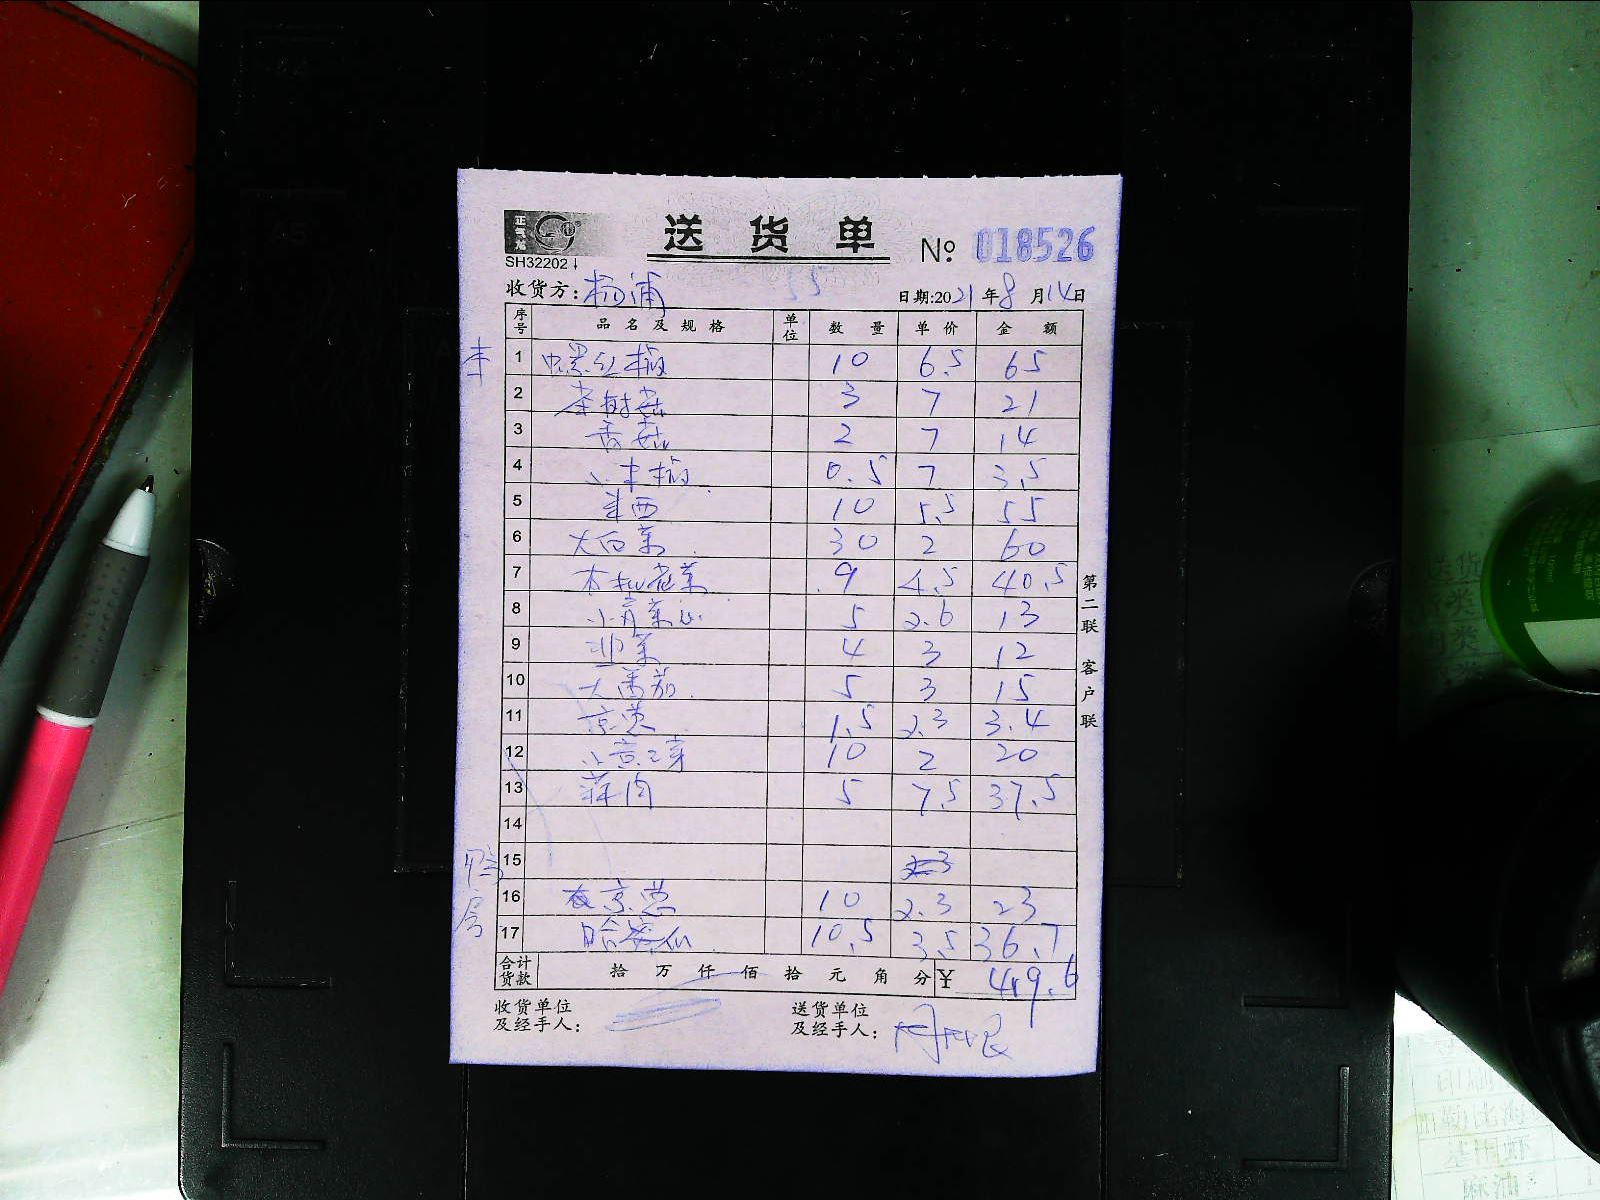 正气龙
送货单 No: 018526
SH32202↓
收货方: 杨浦 55 日期:2021年8月14日
序号 品名及规格 单位 数量 单价 金额
本
1 10 6.5 65
2 茶树菇 3 7 21
3 香菇 2 7 14
4 0.5 7 3.5
5 10 5.5 55
6 大白菜 30 2 60
7 本地花菜 9 4.5 40.5
8 小青菜心 5 2.6 13
9 韭菜 4 3 12
10 大番茄 5 3 15
11 京葱 1.5 2.3 3.4
12 10 2 20
13 蒜肉 5 7.5 37.5
14
15
16 京葱 10 2.3 23
17 哈密瓜 10.5 3.5 36.7
合计货款 拾万仟佰拾元角分 ¥ 419.6
收货单位
及经手人:
送货单位
及经手人:
第二联 客户联